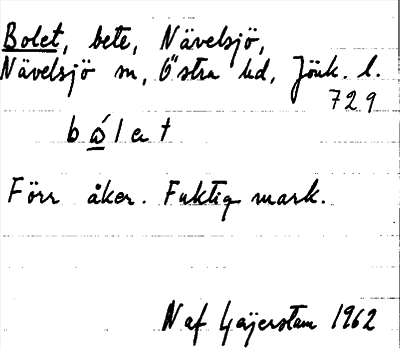 Bolet, bete, Nävelsjö,
Nävelsjö sn, Östra hd, Jönk. l.
729
bó̲let
Förr åker. Fuktig mark.
N af Geijerstam 1962